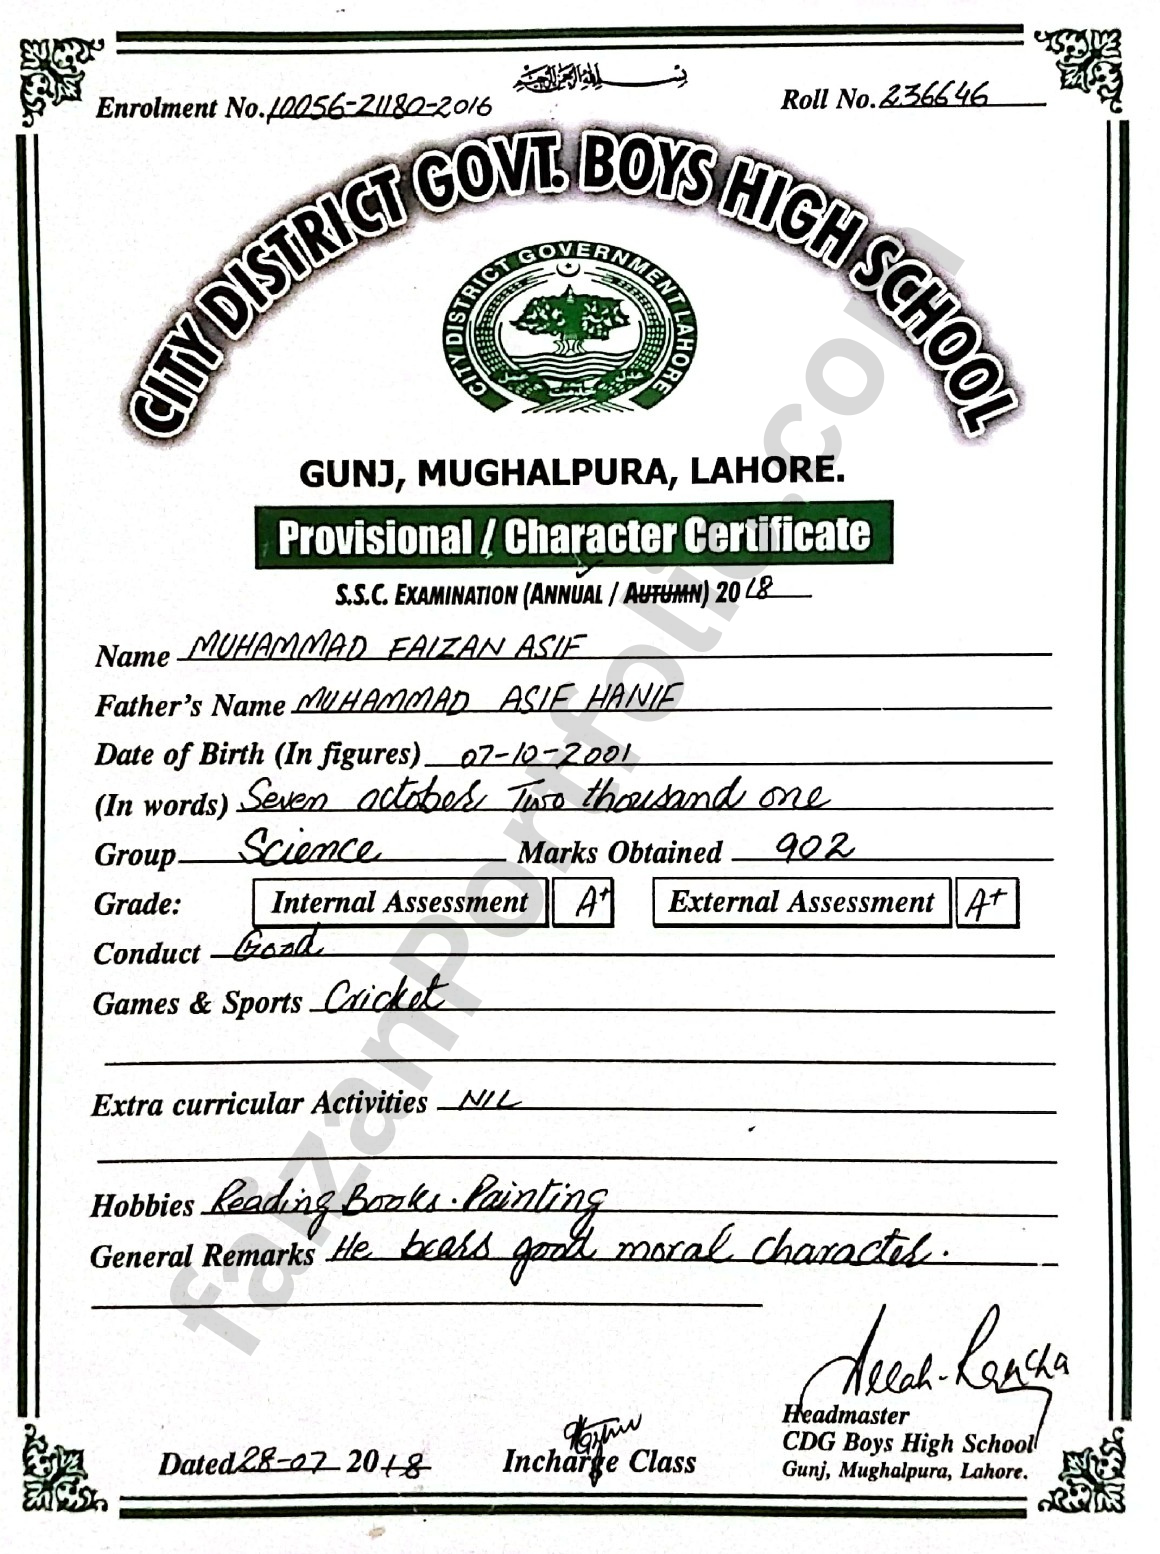 بسم الله الرحمن الرحيم
Enrolment No. 10056-21180-2016
Roll No. 236646
CITY DISTRICT GOVT. BOYS HIGH SCHOOL
CITY DISTRICT GOVERNMENT LAHORE
GUNJ, MUGHALPURA, LAHORE.
Provisional / Character Certificate
S.S.C. EXAMINATION (ANNUAL / AUTUMN) 2018
Name MUHAMMAD FAIZAN ASIF
Father's Name MUHAMMAD ASIF HANIF
Date of Birth (In figures) 07-10-2001
(In words) Seven october Two thousand one
Group Science Marks Obtained 902
Grade: Internal Assessment A+ External Assessment A+
Conduct Good
Games & Sports Cricket
Extra curricular Activities NIL
Hobbies Reading Books. Painting
General Remarks He bears good moral character.
Headmaster
CDG Boys High School
Gunj, Mughalpura, Lahore.
Dated 28-07 2018
Incharge Class
faizanPortfolio.com